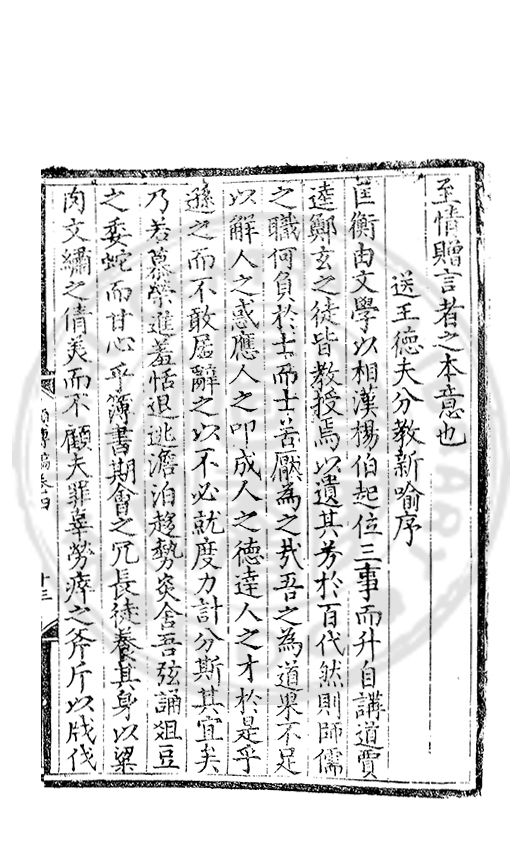 至情贈言者之本意也
送王德夫分教新喻序
匡衡由文學以相漢楊伯起位三事而升自講道賈
逵鄭玄之徒皆教授焉以遺其芳於百代然則師儒
之職何負於士而士苦厭為之哉吾之為道果不足
以解人之惑應人之叩成人之德達人之才於是乎
遜之而不敢居辭之以不必就度力計分斯其宜矣
乃若慕榮進羞恬退逃澹泊趍勢炎舍吾弦誦俎豆
之委蛇而甘心乎簿書期會之冗長徒養其身以粱
肉文繡之倩美而不顧夫罪辜勞瘁之斧斤以戕伐
稿卷四
十三